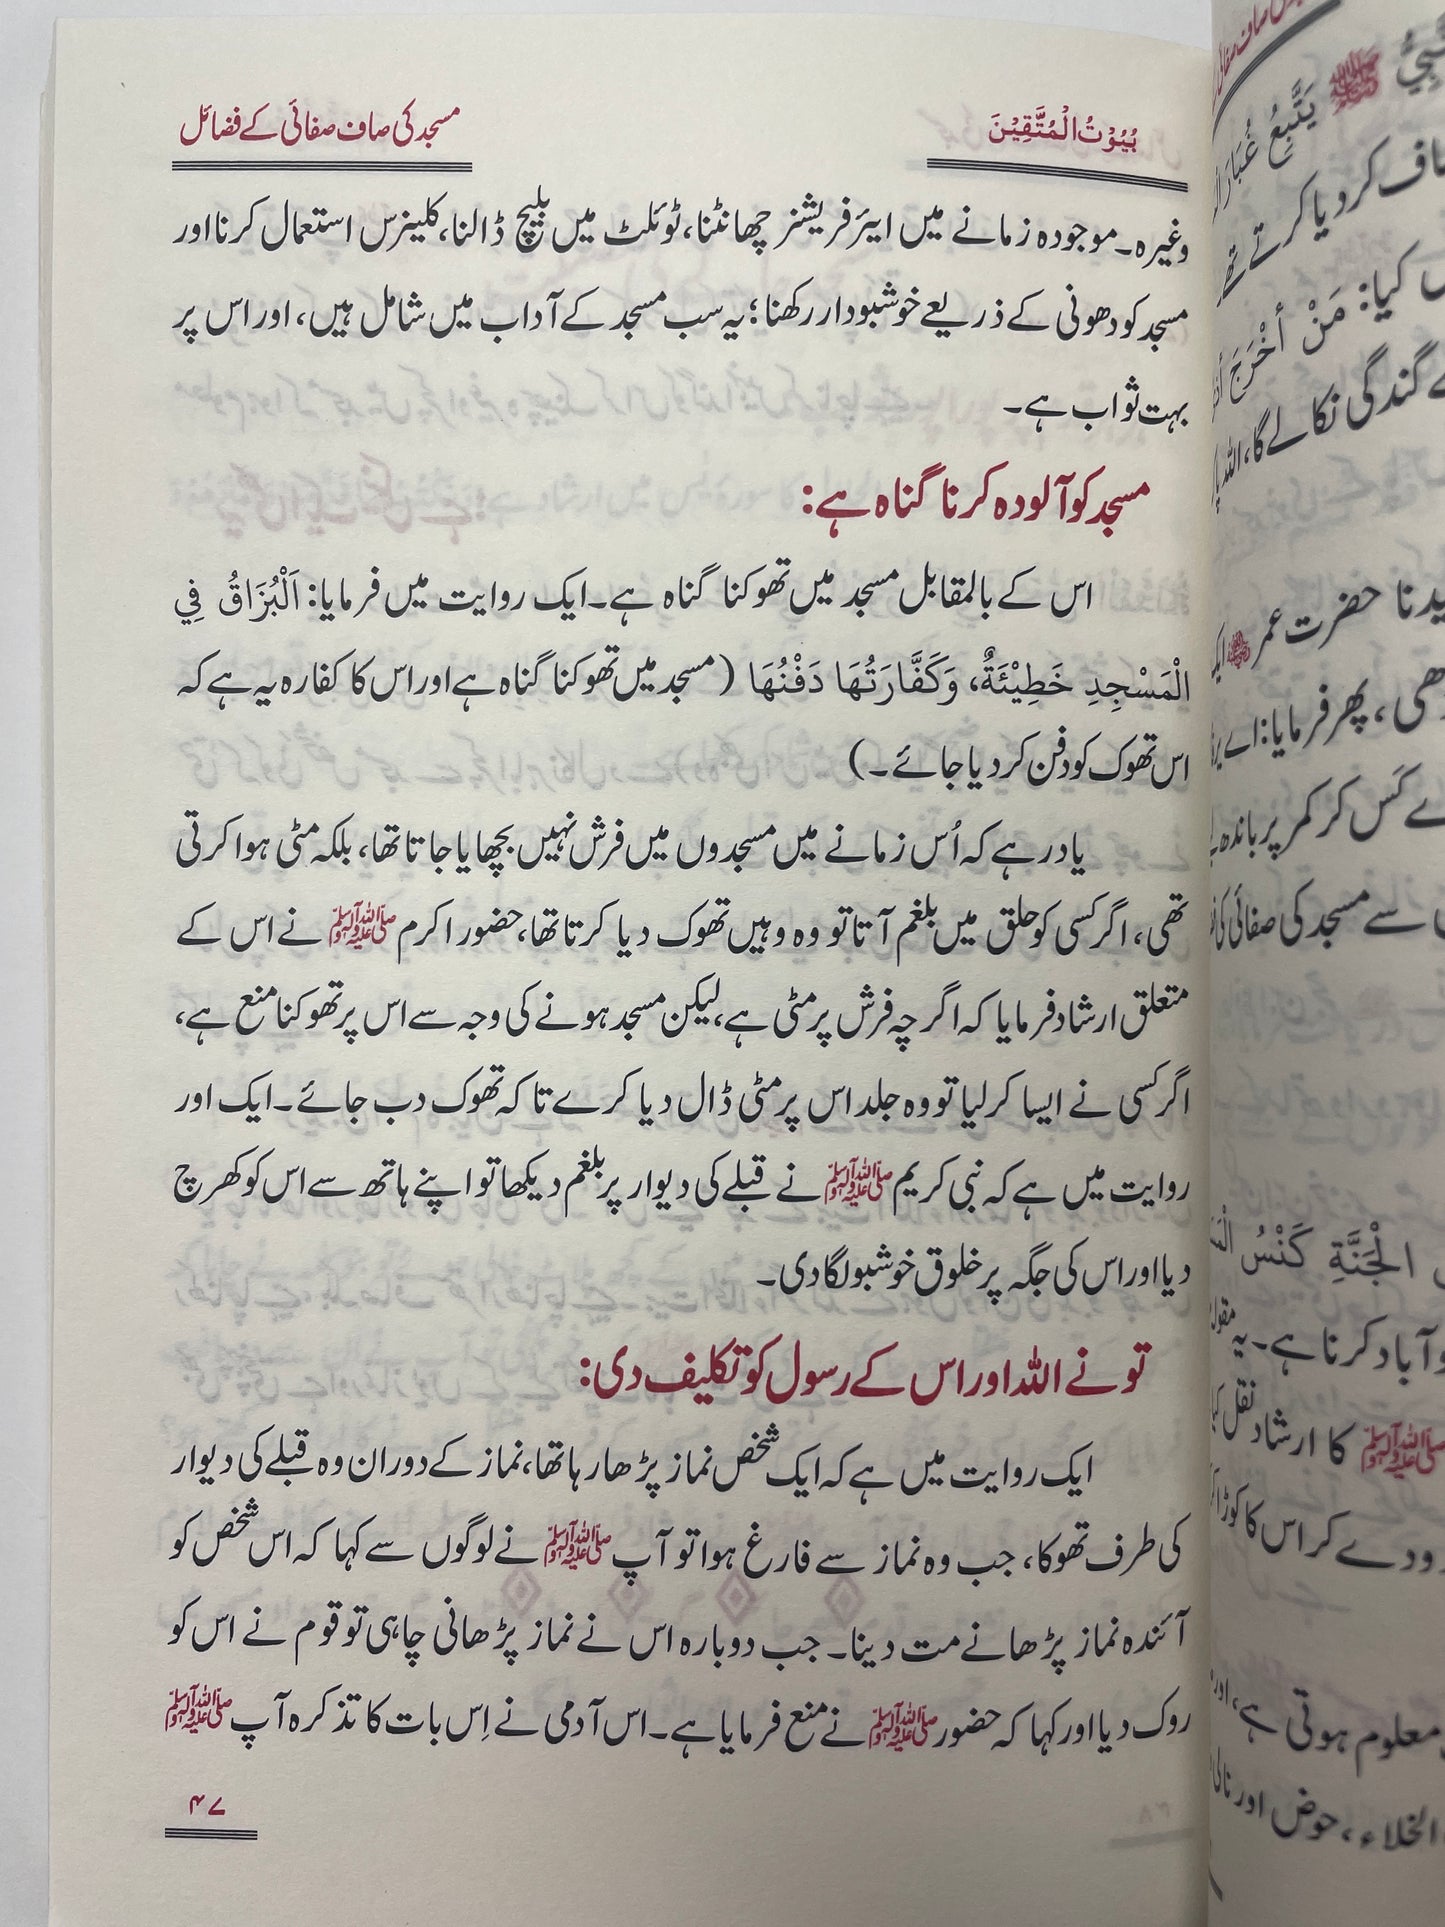 بُيُوْتُ الْمُتَّقِيْنَ
مسجد کی صاف صفائی کے فضائل
وغیرہ۔ موجودہ زمانے میں ایئر فریشنر چھانٹنا، ٹوئلٹ میں بلیچ ڈالنا، کلینرس استعمال کرنا اور
مسجد کو دھونی کے ذریعے خوشبودار رکھنا؛ یہ سب مسجد کے آداب میں شامل ہیں، اور اس پر
بہت ثواب ہے۔
مسجد کو آلودہ کرنا گناہ ہے:
اس کے بالمقابل مسجد میں تھوکنا گناہ ہے۔ ایک روایت میں فرمایا: اَلْبُزَاقُ فِي
الْمَسْجِدِ خَطِيْئَةٌ، وَكَفَّارَتُهَا دَفْنُهَا (مسجد میں تھوکنا گناہ ہے اور اس کا کفارہ یہ ہے کہ
اس تھوک کو دفن کر دیا جائے۔)
یاد رہے کہ اُس زمانے میں مسجدوں میں فرش نہیں بچھایا جاتا تھا، بلکہ مٹی ہوا کرتی
تھی، اگر کسی کو حلق میں بلغم آتا تو وہ وہیں تھوک دیا کرتا تھا، حضور اکرم ﷺ نے اس کے
متعلق ارشاد فرمایا کہ اگرچہ فرش پر مٹی ہے، لیکن مسجد ہونے کی وجہ سے اس پر تھوکنا منع ہے،
اگر کسی نے ایسا کر لیا تو وہ جلد اس پر مٹی ڈال دیا کرے تاکہ تھوک دب جائے۔ ایک اور
روایت میں ہے کہ نبی کریم ﷺ نے قبلے کی دیوار پر بلغم دیکھا تو اپنے ہاتھ سے اس کو کھرچ
دیا اور اس کی جگہ پر خلوق خوشبو لگا دی۔
تو نے اللہ اور اس کے رسول کو تکلیف دی:
ایک روایت میں ہے کہ ایک شخص نماز پڑھا رہا تھا، نماز کے دوران وہ قبلے کی دیوار
کی طرف تھوکا، جب وہ نماز سے فارغ ہوا تو آپ ﷺ نے لوگوں سے کہا کہ اس شخص کو
آئندہ نماز پڑھانے مت دینا۔ جب دوبارہ اس نے نماز پڑھانی چاہی تو قوم نے اس کو
روک دیا اور کہا کہ حضور ﷺ نے منع فرمایا ہے۔ اس آدمی نے اِس بات کا تذکرہ آپ ﷺ
۴۷
ﷺ يَتَّبِعُ غُبَارَ
کر دیا کرتے تھے
کیا: مَنْ أَخْرَجَ
گندگی نکالے گا، اللہ
حضرت عمر
، پھر فرمایا: اے
کَس کر کمر پر باندھے
سے مسجد کی صفائی کی
الْجَنَّةِ كَنْسُ
آباد کرنا ہے۔ یہ
ﷺ کا ارشاد نقل
دے کر اس کا
معلوم ہوتی ہے، اور
الخلاء، حوض اور